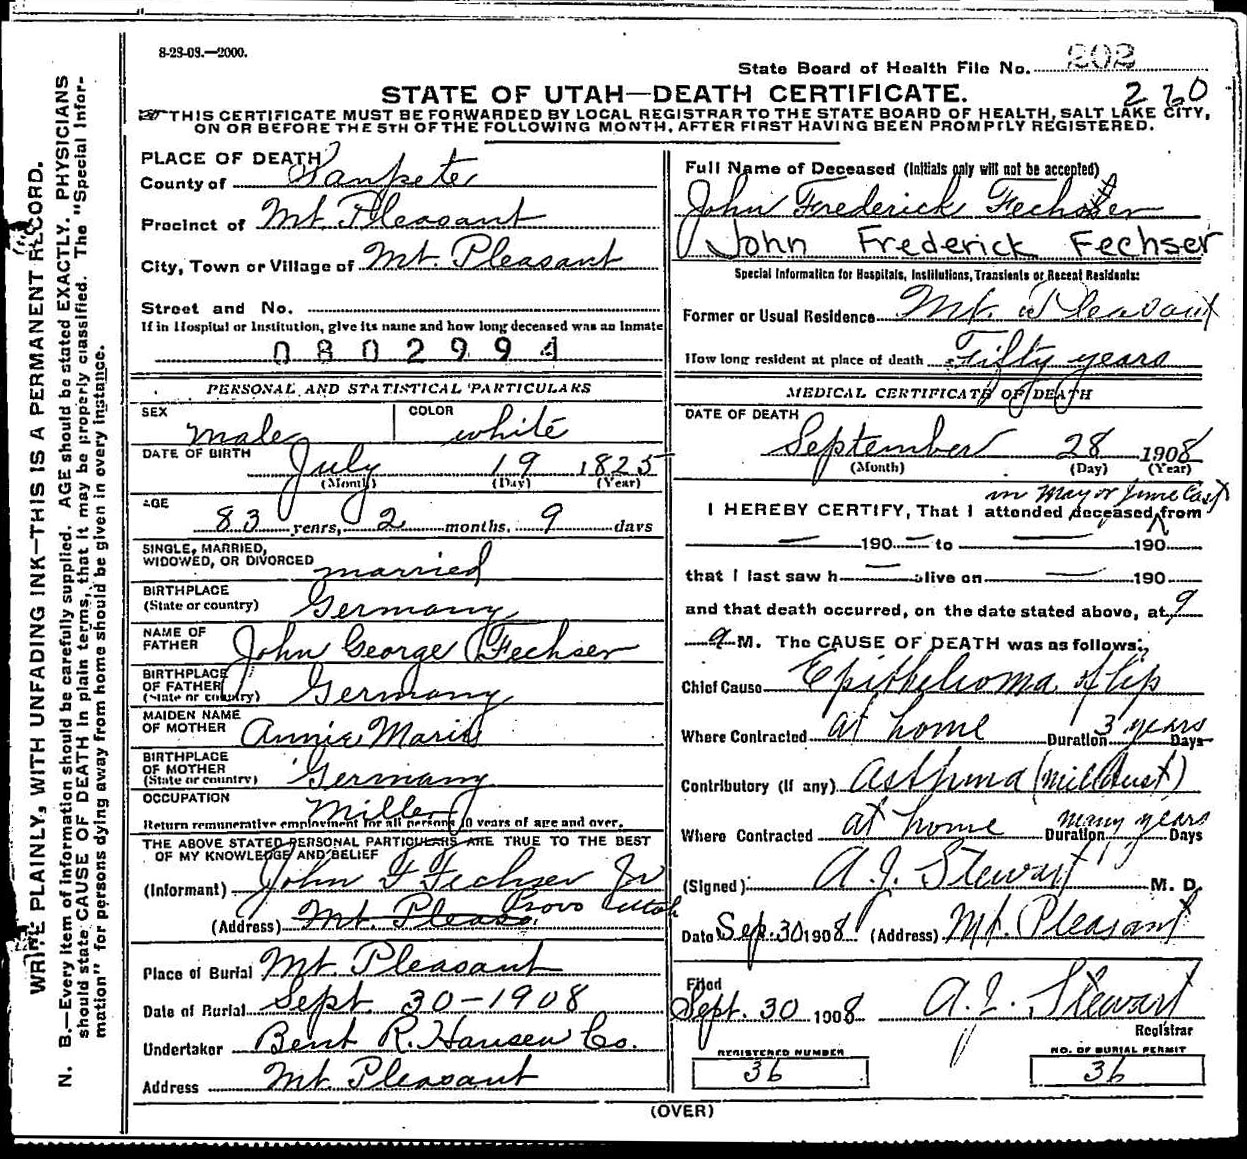 8-23-08.—2000.
State Board of Health File No. 202
STATE OF UTAH—DEATH CERTIFICATE. 260
THIS CERTIFICATE MUST BE FORWARDED BY LOCAL REGISTRAR TO THE STATE BOARD OF HEALTH, SALT LAKE CITY,
ON OR BEFORE THE 5TH OF THE FOLLOWING MONTH, AFTER FIRST HAVING BEEN PROMPTLY REGISTERED.
WRITE PLAINLY, WITH UNFADING INK—THIS IS A PERMANENT RECORD.
N. B.—Every item of information should be carefully supplied. AGE should be stated EXACTLY. PHYSICIANS
should state CAUSE OF DEATH in plain terms, that it may be properly classified. The "Special Infor-
mation" for persons dying away from home should be given in every instance.
PLACE OF DEATH
County of Sanpete
Precinct of Mt. Pleasant
City, Town or Village of Mt. Pleasant
Street and No.
If in Hospital or Institution, give its name and how long deceased was an inmate
0802994
PERSONAL AND STATISTICAL PARTICULARS
SEX male COLOR white
DATE OF BIRTH July 19 1825
(Month) (Day) (Year)
AGE 83 years, 2 months, 9 days
SINGLE, MARRIED,
WIDOWED, OR DIVORCED married
BIRTHPLACE
(State or country) Germany
NAME OF
FATHER John George Fechser
BIRTHPLACE
OF FATHER
(State or country) Germany
MAIDEN NAME
OF MOTHER Annie Marie
BIRTHPLACE
OF MOTHER
(State or country) Germany
OCCUPATION Miller
Return remunerative employment for all persons 10 years of age and over.
THE ABOVE STATED PERSONAL PARTICULARS ARE TRUE TO THE BEST
OF MY KNOWLEDGE AND BELIEF
(Informant) John F Fechser Jr
(Address) Mt. Pleas. Provo Utah
Place of Burial Mt Pleasant
Date of Burial Sept. 30-1908
Undertaker Bent R. Hansen Co.
Address Mt Pleasant
Full Name of Deceased (Initials only will not be accepted)
John Frederick Fechser
John Frederick Fechser
Special Information for Hospitals, Institutions, Transients or Recent Residents:
Former or Usual Residence Mt. Pleasant
How long resident at place of death Fifty years
MEDICAL CERTIFICATE OF DEATH
DATE OF DEATH
September 28 1908
(Month) (Day) (Year)
in May or June last
I HEREBY CERTIFY, That I attended deceased from
— 190 — to — 190
that I last saw h — alive on — 190
and that death occurred, on the date stated above, at 9
a M. The CAUSE OF DEATH was as follows:
Chief Cause Epithelioma of lip
Where Contracted at home Duration 3 years Days
Contributory (If any) Asthma (Mill dust)
Where Contracted at home Duration many years Days
(Signed) A. J. Stewart M. D.
Date Sep. 30 1908 (Address) Mt. Pleasant
Filed
Sept. 30 1908 A. J. Stewart
Registrar
REGISTERED NUMBER
36
NO. OF BURIAL PERMIT
36
(OVER)